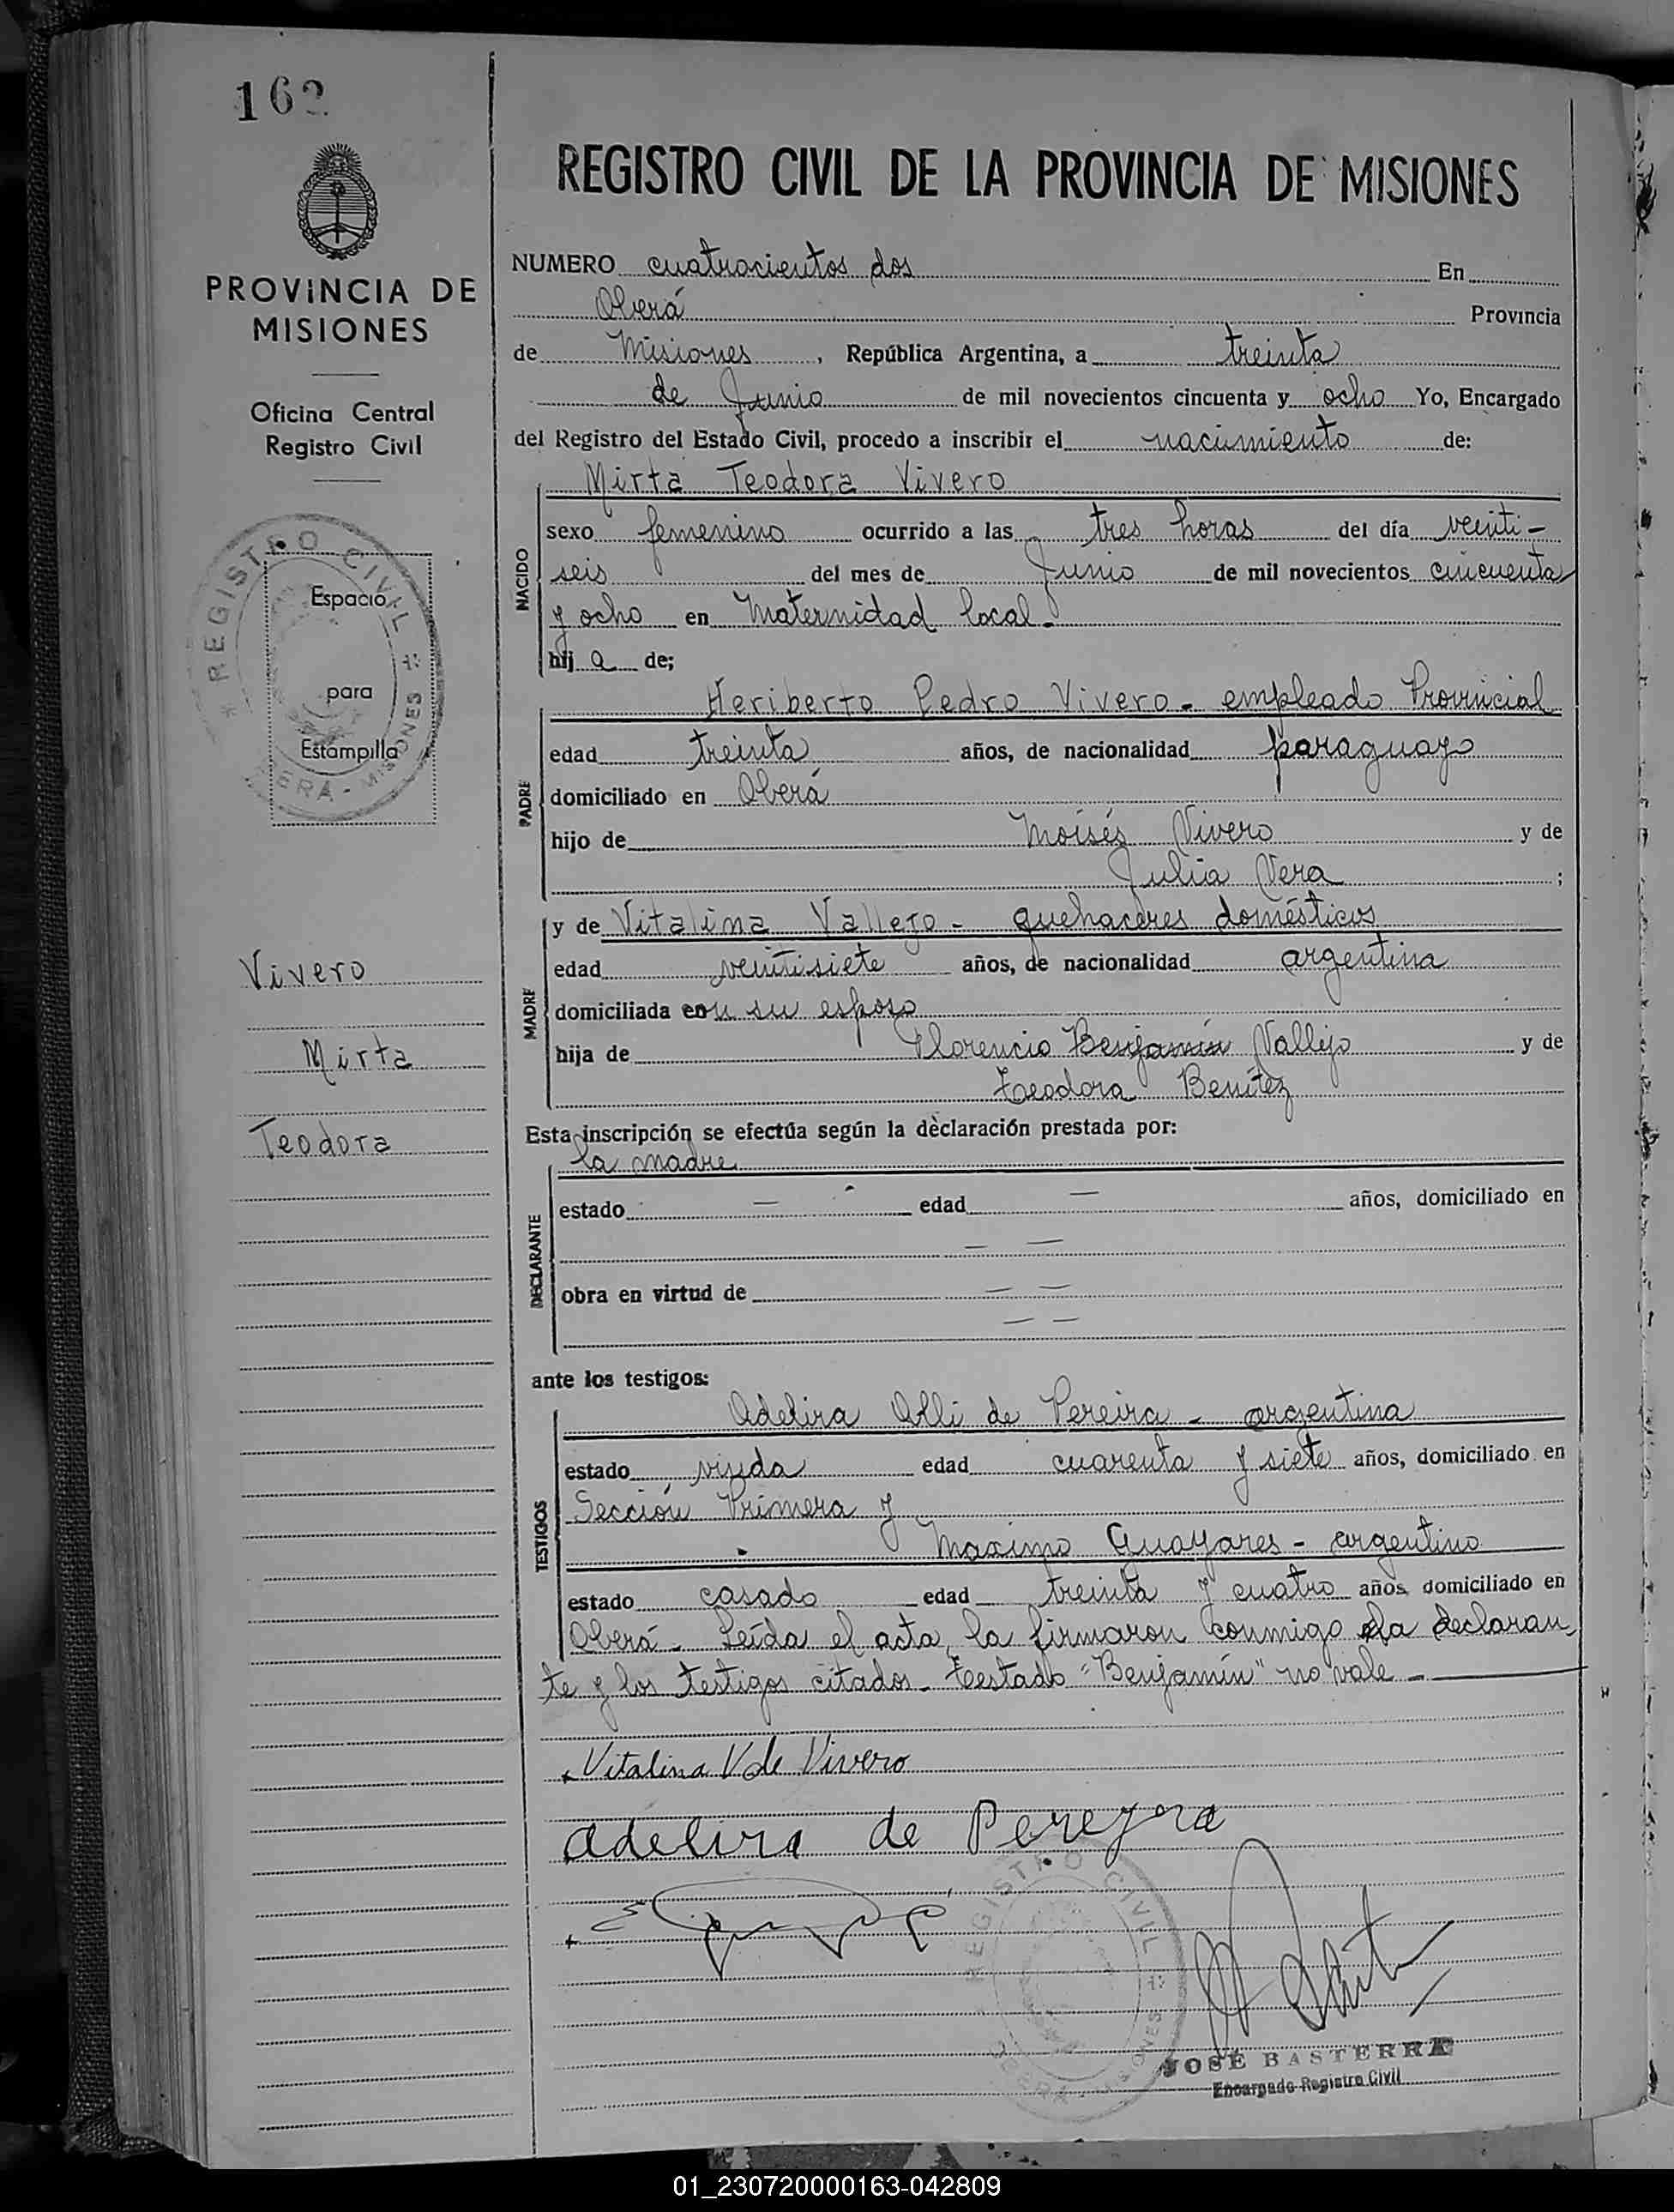 162
PROVINCIA DE
MISIONES
Oficina Central
Registro Civil
REGISTRO CIVIL
OBERÁ - MISIONES
Espacio
para
Estampilla
Vivero
Mirta
Teodora
REGISTRO CIVIL DE LA PROVINCIA DE MISIONES
NUMERO cuatrocientos dos En
Oberá Provincia
de Misiones, República Argentina, a treinta
de Junio de mil novecientos cincuenta y ocho Yo, Encargado
del Registro del Estado Civil, procedo a inscribir el nacimiento de:
Mirta Teodora Vivero
NACIDO
sexo femenino ocurrido a las tres horas del día veinti-
seis del mes de Junio de mil novecientos cincuenta
y ocho en Maternidad local.
hij a de;
Heriberto Pedro Vivero - empleado Provincial
PADRE
edad treinta años, de nacionalidad paraguayo
domiciliado en Oberá
hijo de Moisés Vivero y de
Julia Vera ;
y de Vitalina Vallejo - quehaceres domésticos
MADRE
edad veintisiete años, de nacionalidad argentina
domiciliada con su esposo
hija de Florencio Benjamín Vallejo y de
Teodora Benítez
Esta inscripción se efectúa según la dèclaración prestada por:
la madre
DECLARANTE
estado — edad — años, domiciliado en
— —
obra en virtud de — —
— —
ante los testigos:
Adelira Olli de Pereira - argentina
TESTIGOS
estado viuda edad cuarenta y siete años, domiciliado en
Sección Primera y
Maximo Guayares - argentino
estado casado edad treinta y cuatro años domiciliado en
Oberá - Leída el acta, la firmaron conmigo la declaran-
te y los testigos citados - Testado "Benjamín" no vale -
Vitalina V de Vivero
Adelira de Pereyra
REGISTRO CIVIL
OBERÁ - MISIONES
JOSÉ BASTERRA
Encargado Registro Civil
01_230720000163-042809